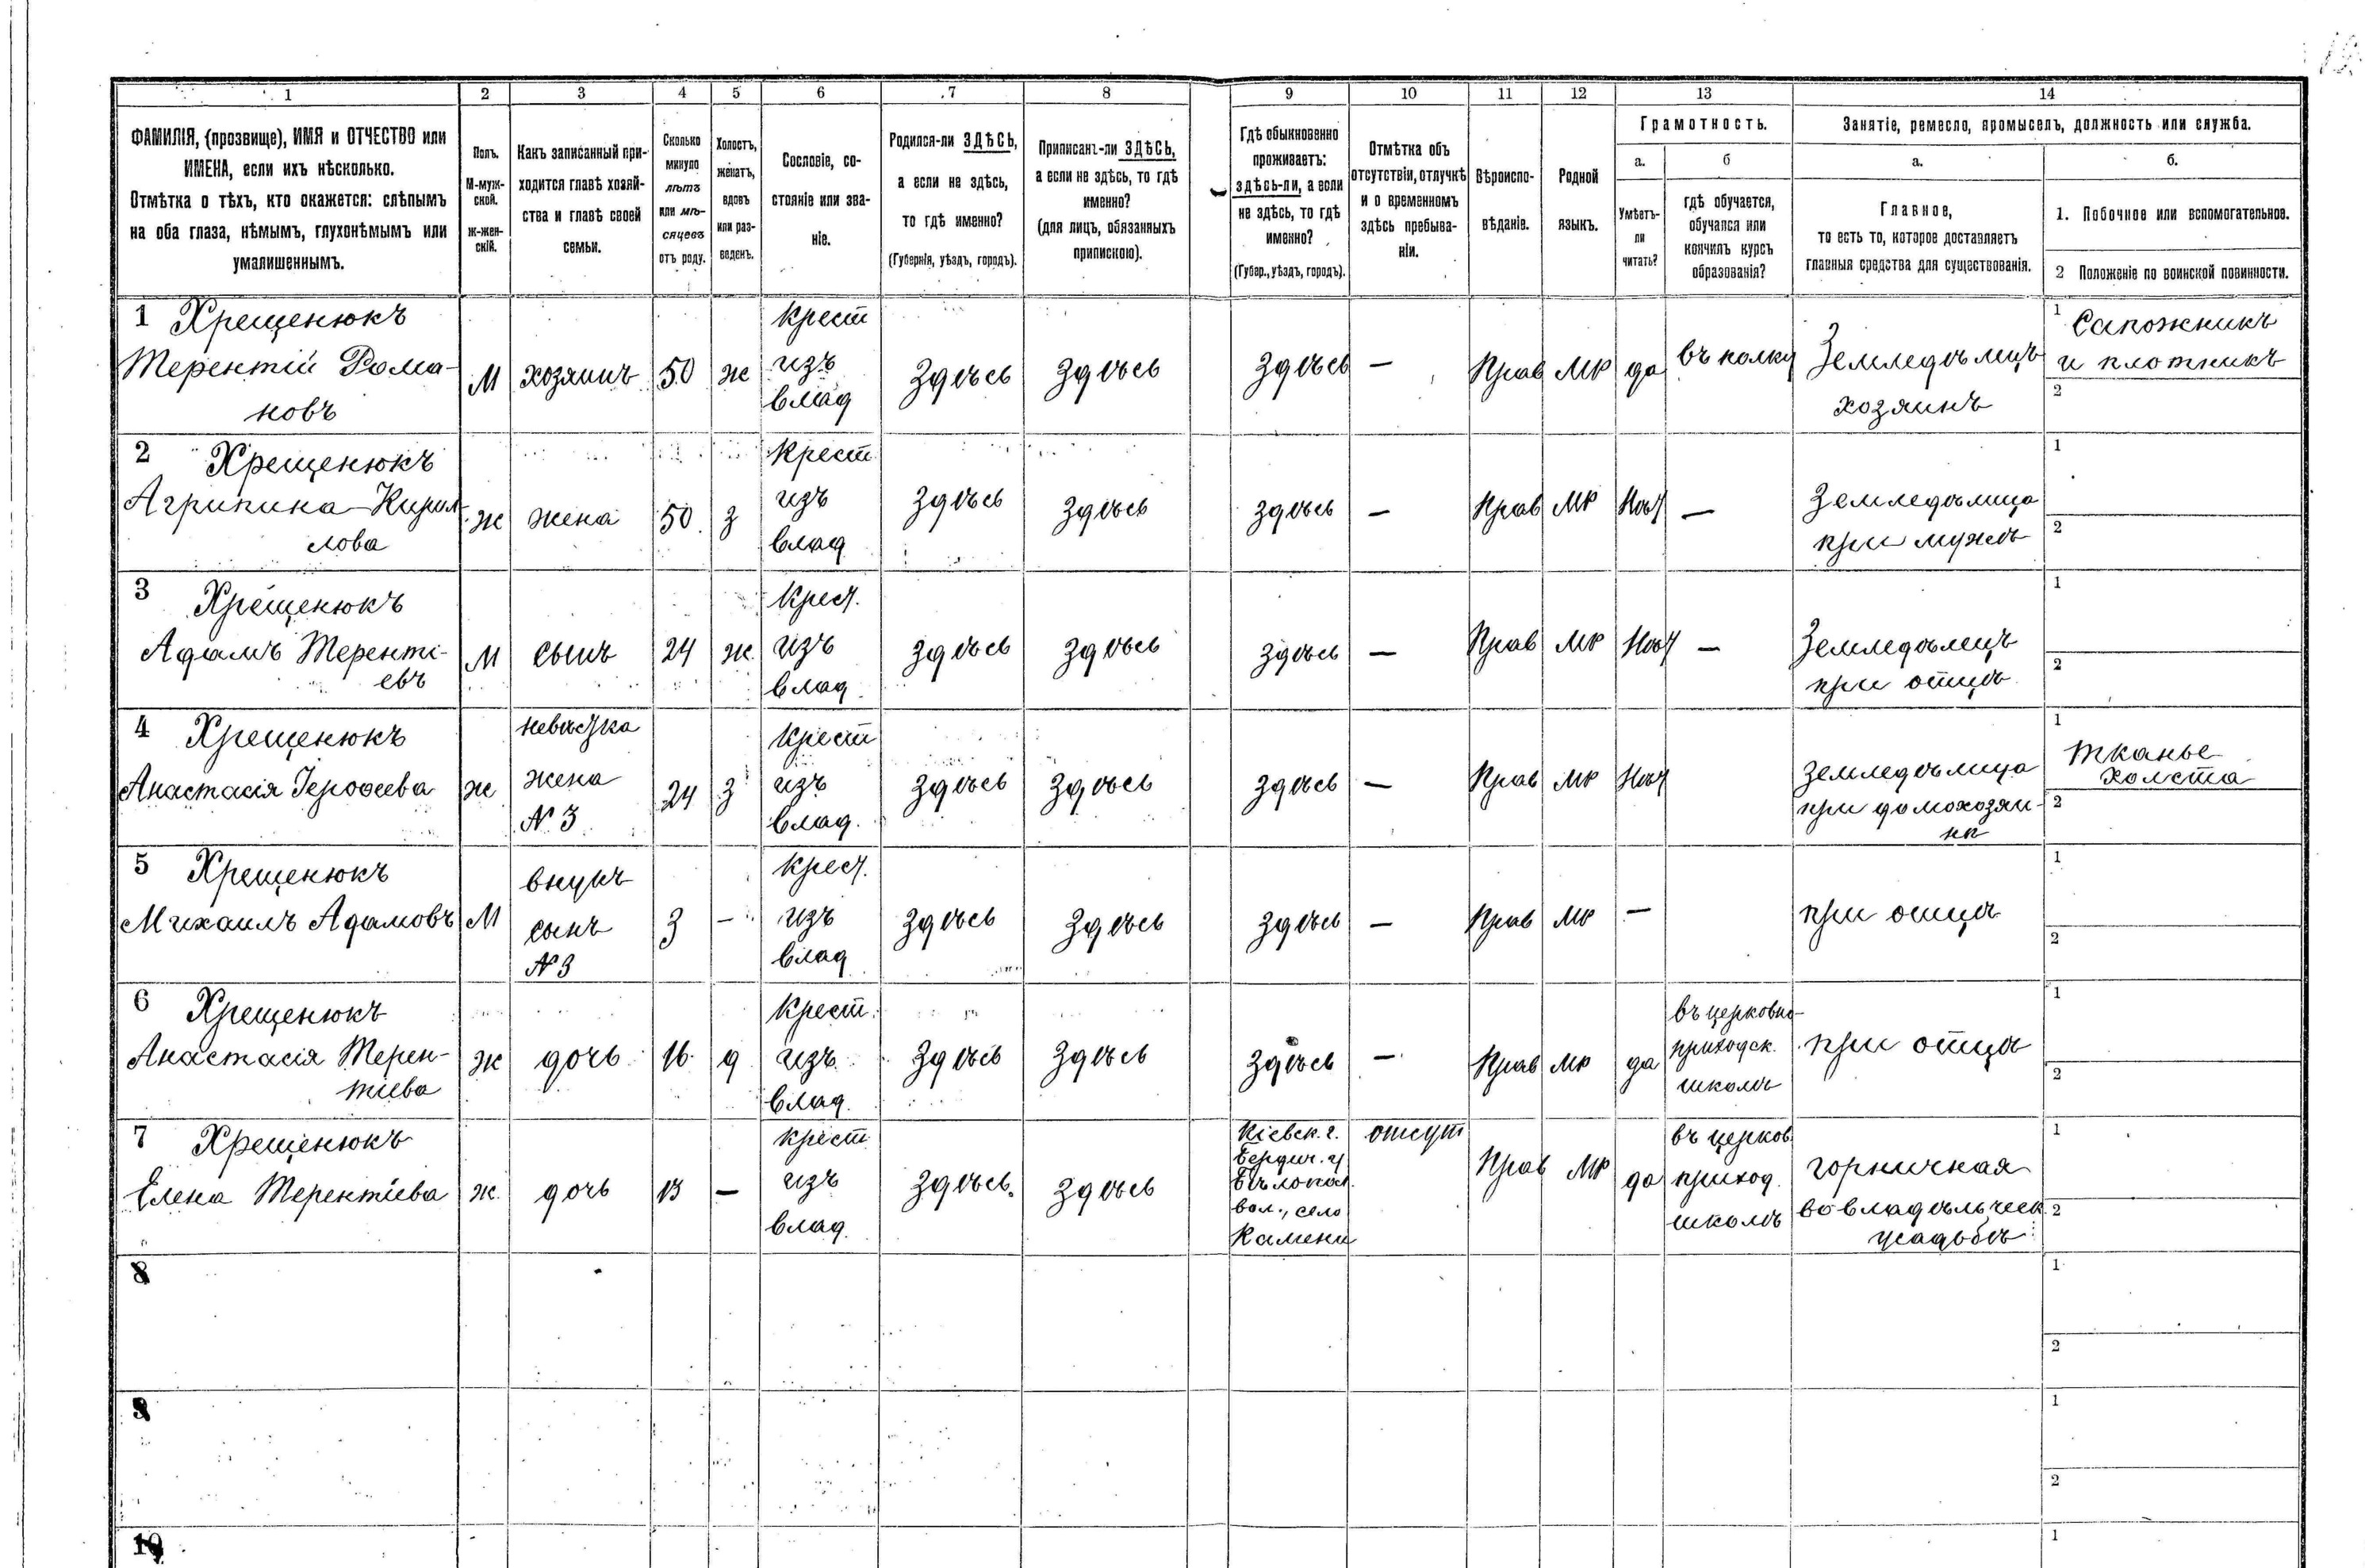 1
2
3
4
5
6
7
8
9
10
11
12
13
14
ФАМИЛІЯ, (прозвище), ИМЯ и ОТЧЕСТВО или
ИМЕНА, если ихъ нѣсколько.
Отмѣтка о тѣхъ, кто окажется: слѣпымъ
на оба глаза, нѣмымъ, глухонѣмымъ или
умалишеннымъ.
Полъ.
М-муж-
ской.
ж-жен-
скій.
Какъ записанный при-
ходится главѣ хозяй-
ства и главѣ своей
семьи.
Сколько
минуло
лѣтъ
или мѣ-
сяцевъ
отъ роду.
Холостъ,
женатъ,
вдовъ
или раз-
веденъ.
Сословіе, со-
стояніе или зва-
ніе.
Родился-ли ЗДѢСЬ,
а если не здѣсь,
то гдѣ именно?
(Губернія, уѣздъ, городъ).
Приписанъ-ли ЗДѢСЬ,
а если не здѣсь, то гдѣ
именно?
(для лицъ, обязанныхъ
припискою).
Гдѣ обыкновенно
проживаетъ:
здѣсь-ли, а если
не здѣсь, то гдѣ
именно?
(Губер., уѣздъ, городъ).
Отмѣтка объ
отсутствіи, отлучкѣ
и о временномъ
здѣсь пребыва-
ніи.
Вѣроиспо-
вѣданіе.
Родной
языкъ.
Грамотность.
а.
Умѣетъ-
ли
читать?
б
гдѣ обучается,
обучался или
кончилъ курсъ
образованія?
Занятіе, ремесло, промыселъ, должность или служба.
а.
Главное,
то есть то, которое доставляетъ
главныя средства для существованія.
б.
1. Побочное или вспомогательное.
2 Положеніе по воинской повинности.
1 Хрещенюкъ
Терентій Рома-
новъ
М
хозяинъ
50
ж
крест
изъ
влад
здѣсь
здѣсь
здѣсь
—
Прав
Мр
да
въ полку
Земледѣлецъ
хозяинъ
1 Сапожникъ
и плотникъ
2
2 Хрещенюкъ
Агрипина Кирил
лова
ж
жена
50
з
крест
изъ
влад
здѣсь
здѣсь
здѣсь
—
Прав
Мр
Нѣт
—
Земледѣлица
при мужѣ
1
2
3 Хрещенюкъ
Адамъ Теренті-
евъ
М
сынъ
24
ж.
крест.
изъ
влад
здѣсь
здѣсь
здѣсь
—
Прав
Мр
Нѣт
—
Земледѣлецъ
при отцѣ
1
2
4 Хрещенюкъ
Анастасія Іерофеева
ж
невѣстка
жена
№ 3
24
з
крест
изъ
влад.
здѣсь
здѣсь
здѣсь
—
Прав
Мр
Нѣт
земледѣлица
при домохозяи-
нѣ
1
тканье
холста
2
5 Хрещенюкъ
Михаилъ Адамовъ
М
внукъ
сынъ
№ 3
3
—
крест.
изъ
влад
здѣсь
здѣсь
здѣсь
—
Прав
Мр
—
при отцѣ
1
2
6 Хрещенюкъ
Анастасія Терен-
тіева
ж
дочь
16
д
крест.
изъ
влад.
здѣсь
здѣсь
здѣсь
—
Прав
Мр
да
въ церковно-
приходск.
школѣ
при отцѣ
1
2
7 Хрещенюкъ
Елена Терентіева
ж.
дочь
13
—
крест
изъ
влад.
здѣсь.
здѣсь
Кіевск. г.
Бердич. у
Бѣлопол.
вол., село
Камени
отсут
Прав
Мр
да
въ церков
приход.
школѣ
горничная
во владѣльческ.
усадьбѣ
1
2
8
1
2
9
1
2
10
1